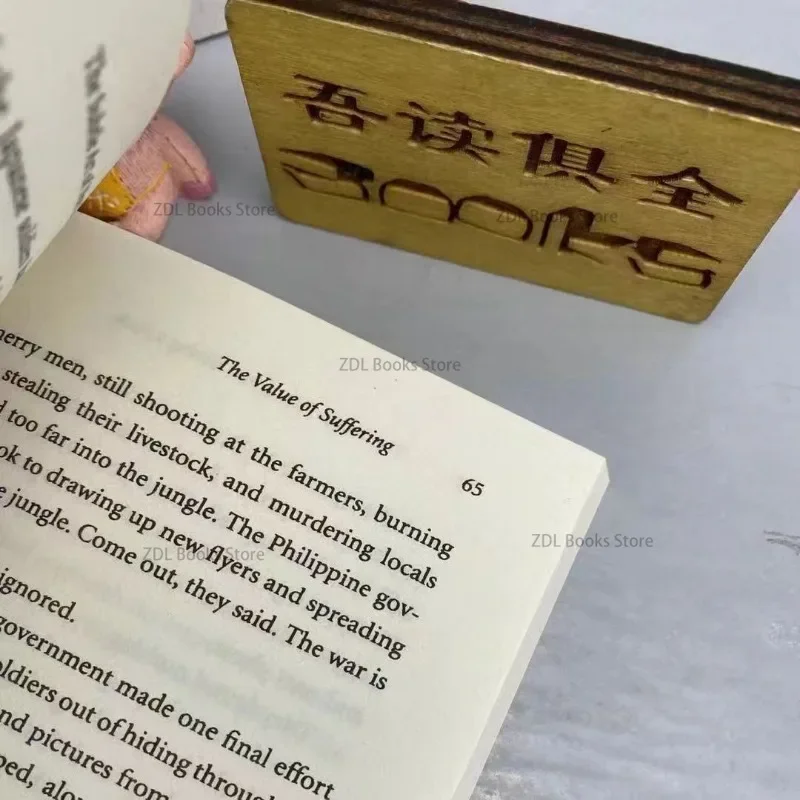 吾读俱全
Books
ZDL Books Store
ZDL Books Store
ZDL Books Store
The Value of Suffering
65
merry men, still shooting at the farmers, burning
stealing their livestock, and murdering locals
too far into the jungle. The Philippine gov-
to drawing up new flyers and spreading
jungle. Come out, they said. The war is
ignored.
government made one final effort
soldiers out of hiding through
and pictures from
ZDL Books Store
ZDL Books Store